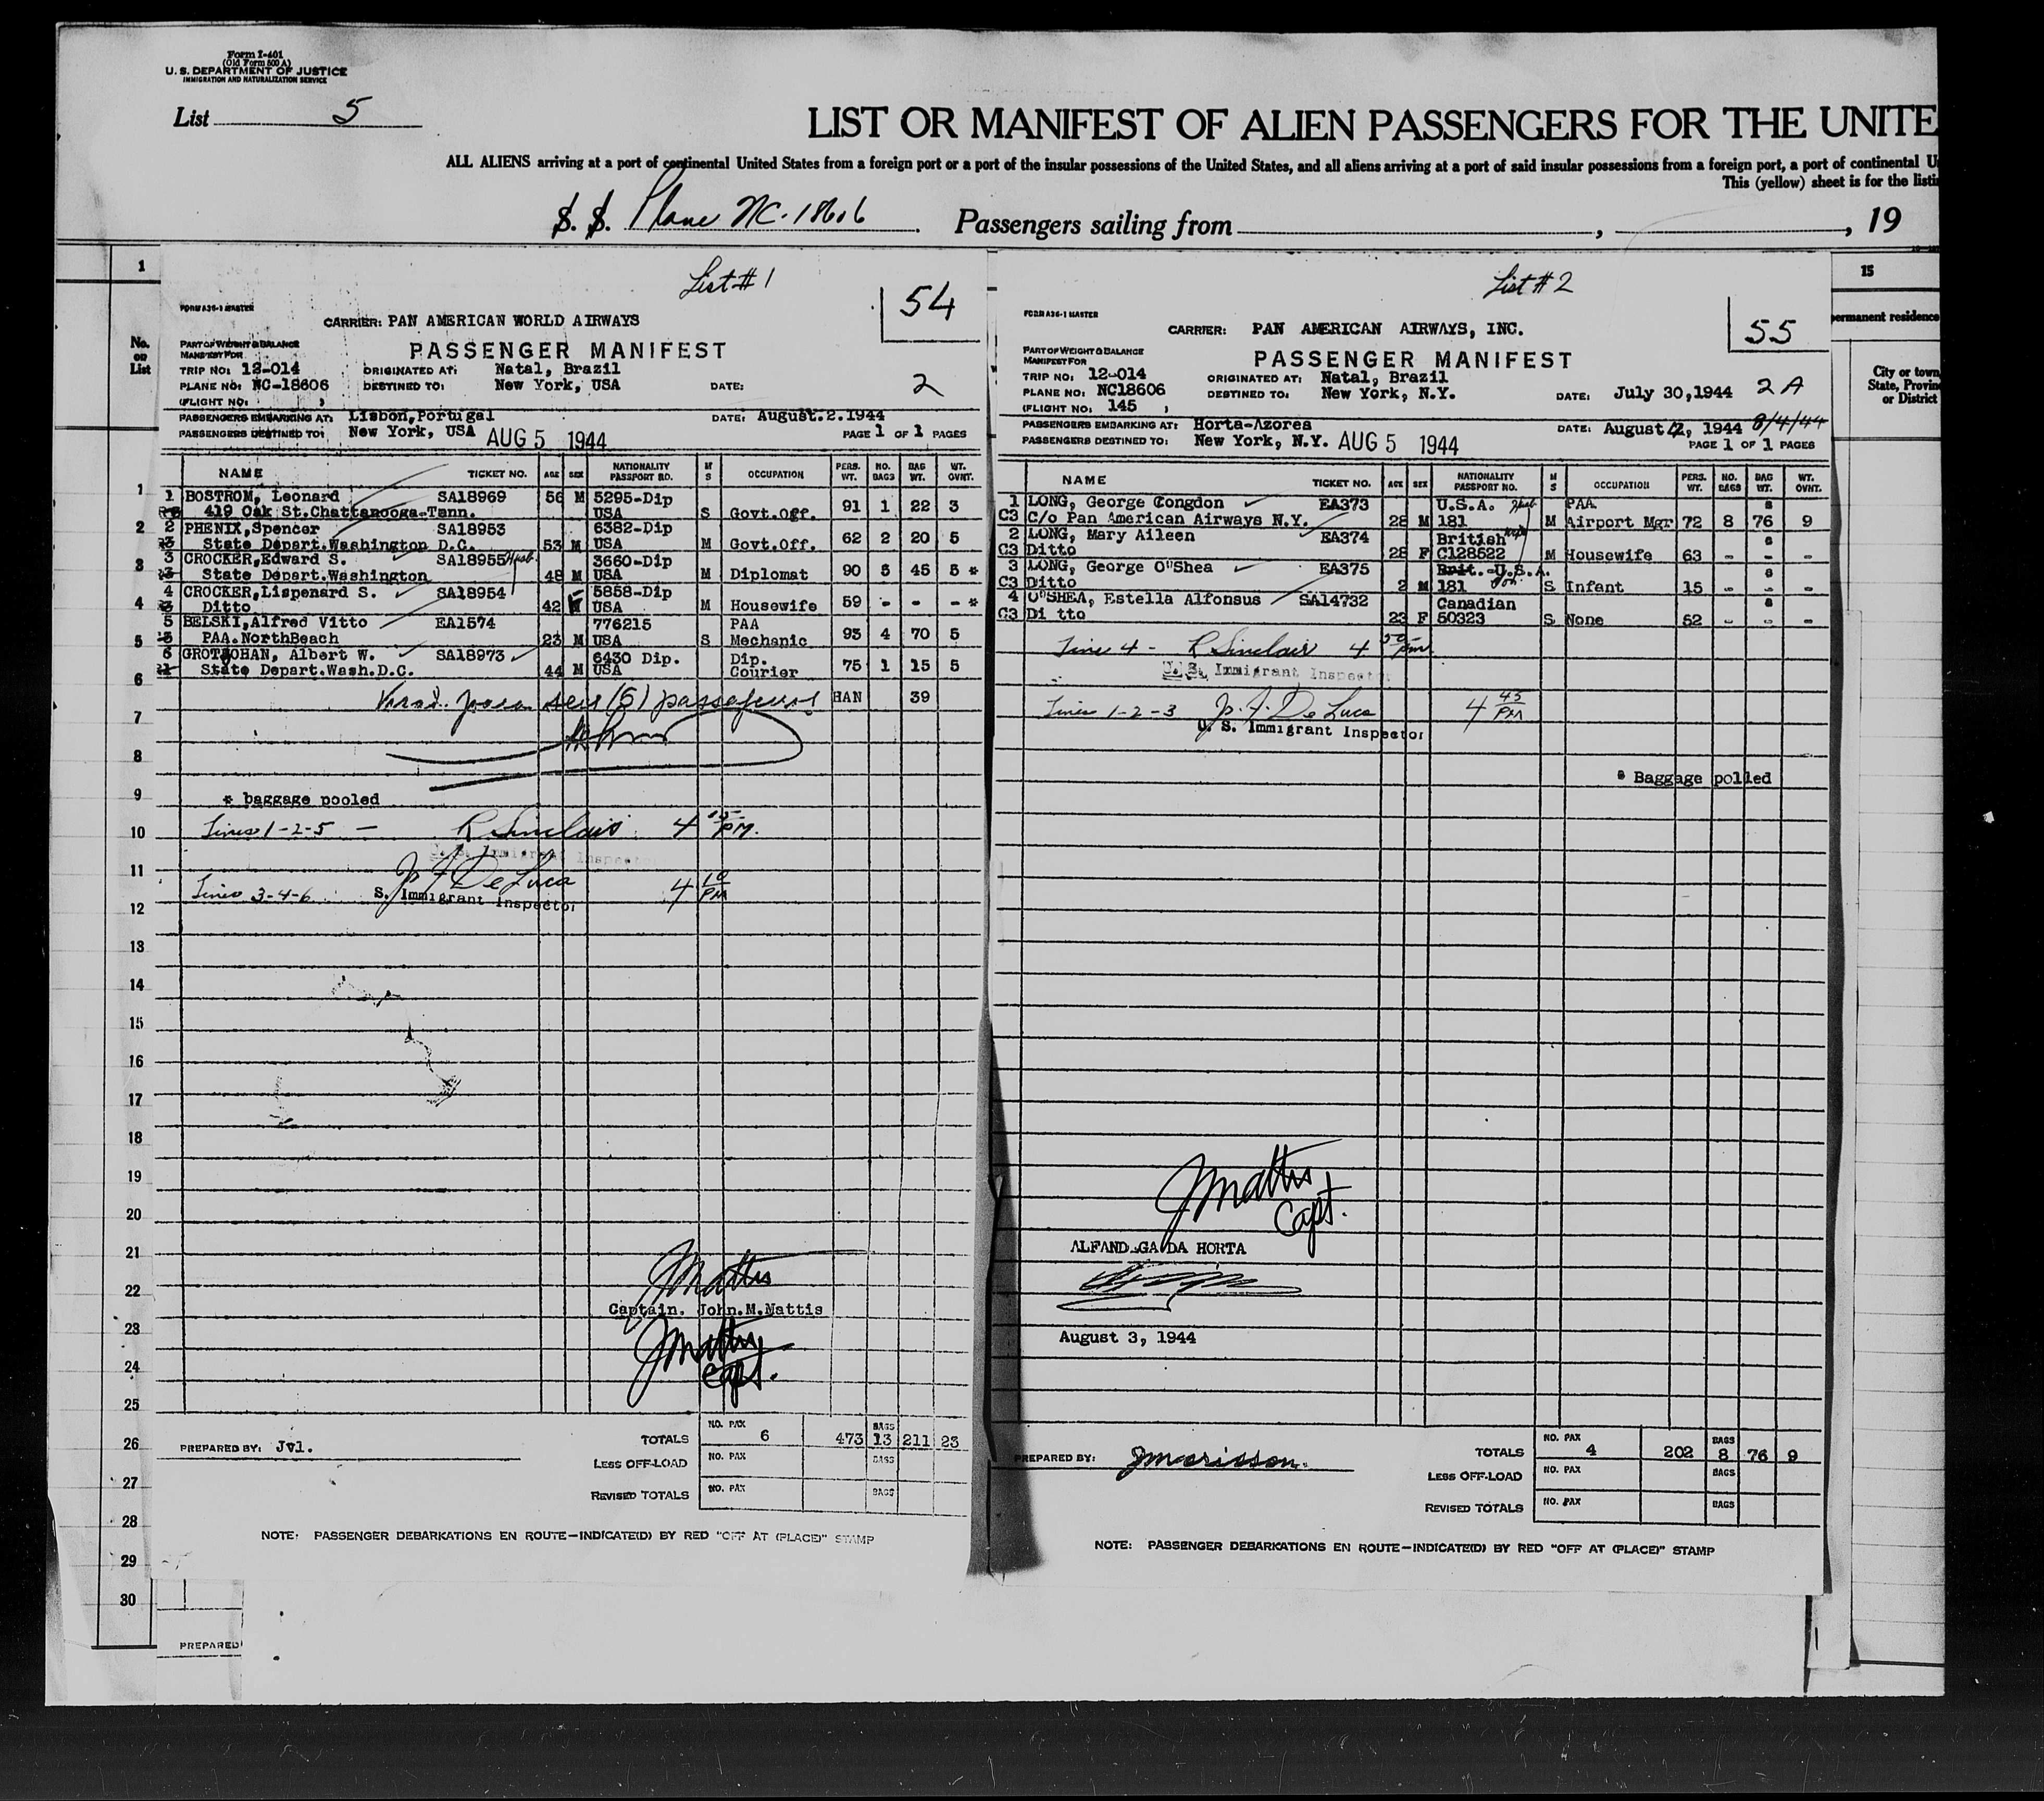 Form I-401
(Old Form 500 A)
U. S. DEPARTMENT OF JUSTICE
IMMIGRATION AND NATURALIZATION SERVICE
List 5
LIST OR MANIFEST OF ALIEN PASSENGERS FOR THE UNITE
ALL ALIENS arriving at a port of continental United States from a foreign port or a port of the insular possessions of the United States, and all aliens arriving at a port of said insular possessions from a foreign port, a port of continental U
This (yellow) sheet is for the listi
S. S. Plane NC-18606 Passengers sailing from , , 19
1
No. on List
List #1
54
FORM A36-1 MASTER
CARRIER: PAN AMERICAN WORLD AIRWAYS
PART OF WEIGHT & BALANCE
MANIFEST FOR
PASSENGER MANIFEST
TRIP NO: 12-014 ORIGINATED AT: Natal, Brazil
PLANE NO: NC-18606 DESTINED TO: New York, USA DATE: 2
(FLIGHT NO: )
PASSENGERS EMBARKING AT: Lisbon,Portugal DATE: August.2.1944
PASSENGERS DESTINED TO: New York, USA AUG 5 1944 PAGE 1 OF 1 PAGES
NAME TICKET NO. AGE SEX NATIONALITY PASSPORT NO. M S OCCUPATION PERS. WT. NO. BAGS BAG WT. WT. OVNT.
1 BOSTROM, Leonard SA18969 56 M 5295-Dip 91 1 22 3
419 Oak St.Chattanooga-Tenn. USA S Govt.Off.
2 PHENIX,Spencer SA18953 6382-Dip 62 2 20 5
State Depart.Washington D.C. 53 M USA M Govt.Off.
3 CROCKER,Edward S. SA18955 Husb 3660-Dip 90 5 45 5 *
State Depart.Washington 48 M USA M Diplomat
4 CROCKER,Lispenard S. SA18954 5858-Dip 59 - - - *
Ditto 42 F USA M Housewife
5 BELSKI,Alfred Vitto EA1574 776215 PAA 93 4 70 5
PAA.NorthBeach 23 M USA S Mechanic
6 GROTJOHAN, Albert W. SA18973 6430 Dip. Dip. 75 1 15 5
State Depart.Wash.D.C. 44 M USA Courier
(6) HAN 39
* baggage pooled
Lines 1-2-5 - R Sinclair 4 15 PM.
U.S. Immigrant Inspector
Lines 3-4-6 J. A. De Luca 4 10 PM
S. Immigrant Inspector
JMattis
Captain. John.M.Mattis
JMattis
Capt.
PREPARED BY: Jvl.
TOTALS NO. PAX 6 473 BAGS 13 211 23
LESS OFF-LOAD NO. PAX BAGS
REVISED TOTALS NO. PAX BAGS
NOTE: PASSENGER DEBARKATIONS EN ROUTE-INDICATE(D) BY RED "OFF AT (PLACE)" STAMP
1
2
3
4
5
6
7
8
9
10
11
12
13
14
15
16
17
18
19
20
21
22
23
24
25
26
27
28
29
30
PREPARED
List #2
55
FORM A36-1 MASTER
CARRIER: PAN AMERICAN AIRWAYS, INC.
PART OF WEIGHT & BALANCE
MANIFEST FOR
PASSENGER MANIFEST
TRIP NO: 12-014 ORIGINATED AT: Natal, Brazil
PLANE NO: NC18606 DESTINED TO: New York, N.Y. DATE: July 30,1944 2A
(FLIGHT NO: 145 )
PASSENGERS EMBARKING AT: Horta-Azores DATE: August 2, 1944 8/4/44
PASSENGERS DESTINED TO: New York, N.Y. AUG 5 1944 PAGE 1 OF 1 PAGES
NAME TICKET NO. AGE SEX NATIONALITY PASSPORT NO. M S OCCUPATION PERS. WT. NO. BAGS BAG WT. WT. OVNT.
1 LONG, George Congdon EA373 U.S.A. Husb PAA
C3 C/o Pan American Airways N.Y. 28 M 181 M Airport Mgr 72 8 76 9
2 LONG, Mary Aileen EA374 British wife
C3 Ditto 28 F C128522 M Housewife 63 - - -
3 LONG, George O"Shea EA375 Brit.-U.S.A.
C3 Ditto 2 M 181 son S Infant 15 - - -
4 O"SHEA, Estella Alfonsus SA14732 Canadian
C3 Di tto 23 F 50323 S None 52 - - -
Line 4 - R Sinclair 4 50 pm
U.S. Immigrant Inspector
Lines 1-2-3 J. A. De Luca 4 45 PM
U. S. Immigrant Inspector
* Baggage polled
JMattis
Capt.
ALFANDEGA DA HORTA
August 3, 1944
PREPARED BY:
TOTALS NO. PAX 4 202 BAGS 8 76 9
LESS OFF-LOAD NO. PAX BAGS
REVISED TOTALS NO. PAX BAGS
NOTE: PASSENGER DEBARKATIONS EN ROUTE-INDICATE(D) BY RED "OFF AT (PLACE)" STAMP
15
permanent residence
City or town,
State, Provin
or District